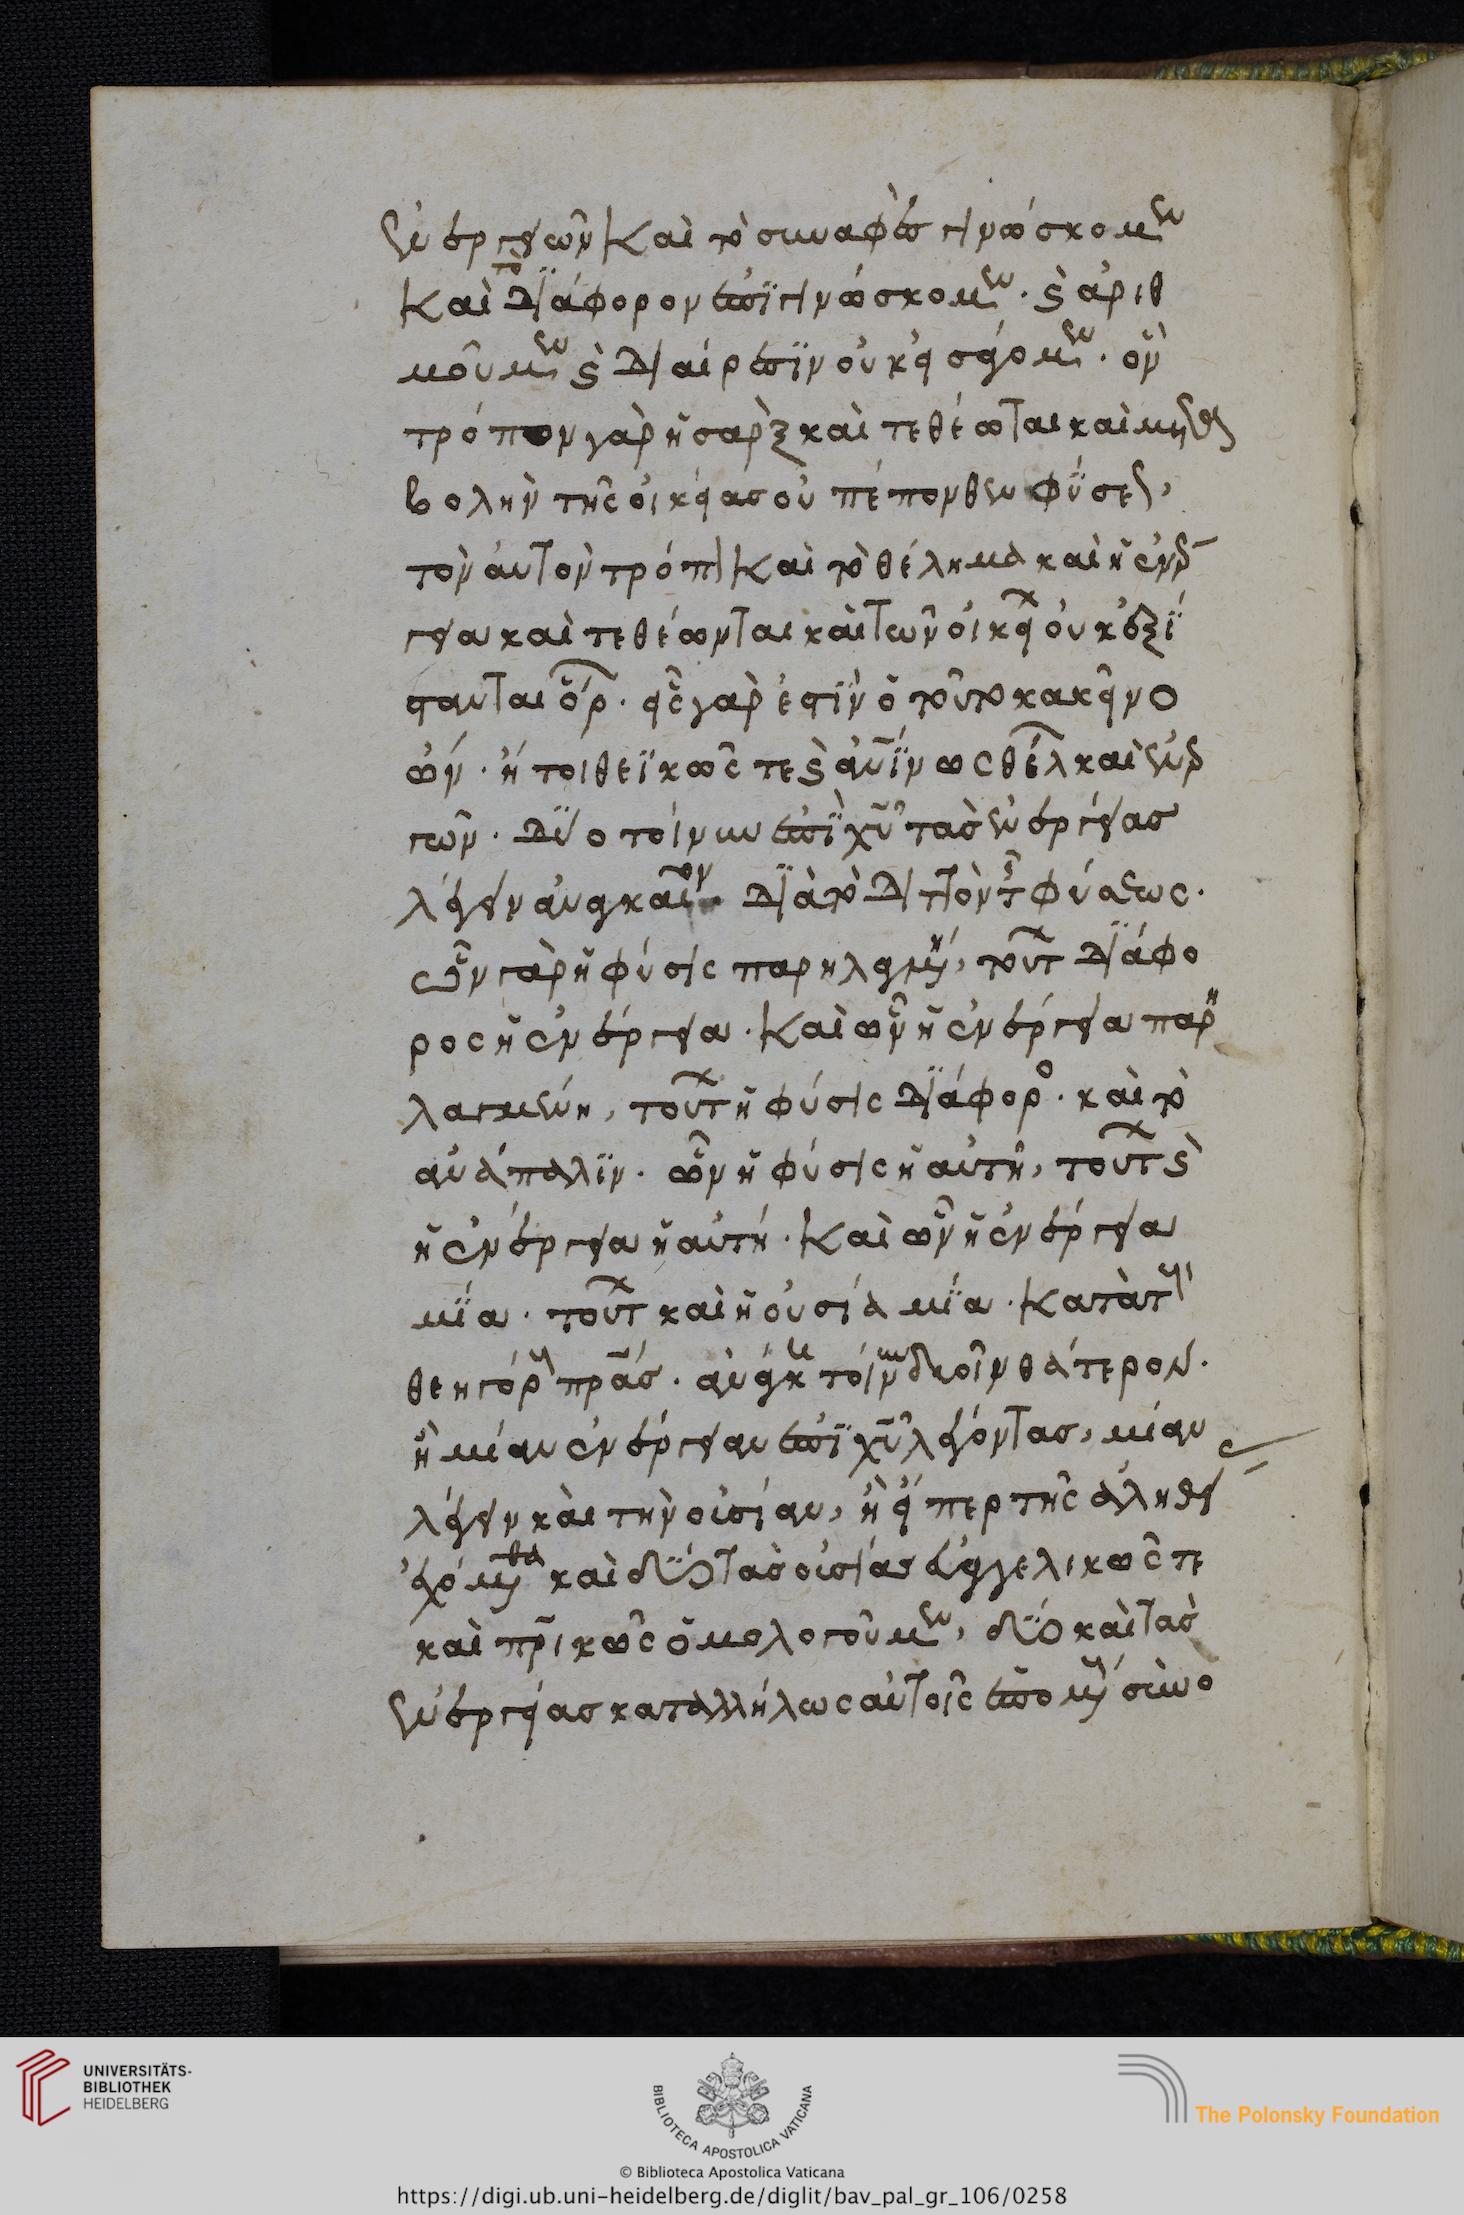 ἐνεργειῶν καὶ τὸ συναφὲς γινώσκομεν
καὶ τὸ διάφορον ἐπιγινώσκομεν· καὶ ἀριθ
μοῦμεν καὶ διαίρεσιν οὐκ εἰσάγομεν· ὃν
τρόπον γὰρ ἡ σὰρξ καὶ τεθέωται καὶ μετα
βολὴν τῆς οἰκείας οὐ πέπονθεν φύσεως,
τὸν αὐτὸν τρόπον καὶ τὸ θέλημα καὶ ἡ ἐνέρ
γεια καὶ τεθέωνται καὶ τῶν οἰκείων οὐκ ἐξί
στανται ὅρων· εἷς γὰρ ἐστὶν ὁ τοῦτο κακεῖνο
ὤν· ἤτοι θεϊκῶς τε καὶ ἀνίνως θέλων καὶ ἐνερ
γῶν· Δύο τοίνυν ἐπὶ χυ τὰς ἐνεργείας
λέγειν ἀναγκαῖον διὰ τὸ διττὸν τῆς φύσεως·
ὧν γὰρ ἡ φύσις παρηλαγμένη, τούτων διάφο
ρος ἡ ἐνέργεια· καὶ ὧν ἡ ἐνέργεια παρη
λαγμένη, τούτων ἡ φύσις διάφορος· καὶ τὸ
ἀνάπαλιν· ὧν ἡ φύσις ἡ αὐτὴ, τούτων καὶ
ἡ ἐνέργεια ἡ αὐτή· καὶ ὧν ἡ ἐνέργεια
μία· τούτων καὶ ἡ οὐσία μία· κατὰ τοὺς
θεηγόρους πρας· ἀνάγκη τοίνυν δυοῖν θάτερον·
ἢ μίαν ἐνέργειαν ἐπὶ χυ λέγοντας, μίαν
λέγειν καὶ τὴν οὐσίαν, ἢ εἴπερ τῆς ἀληθεί
ἐχόμεθα καὶ δύο τὰς οὐσίας εὐαγγελικῶς τε
καὶ πρικῶς ὁμολογοῦμεν, δύο καὶ τὰς
ἐνεργείας καταλλήλως αὐτοῖς ἑπομένας συνο
UNIVERSITÄTS-
BIBLIOTHEK
HEIDELBERG
BIBLIOTECA APOSTOLICA VATICANA
The Polonsky Foundation
© Biblioteca Apostolica Vaticana
https://digi.ub.uni-heidelberg.de/diglit/bav_pal_gr_106/0258